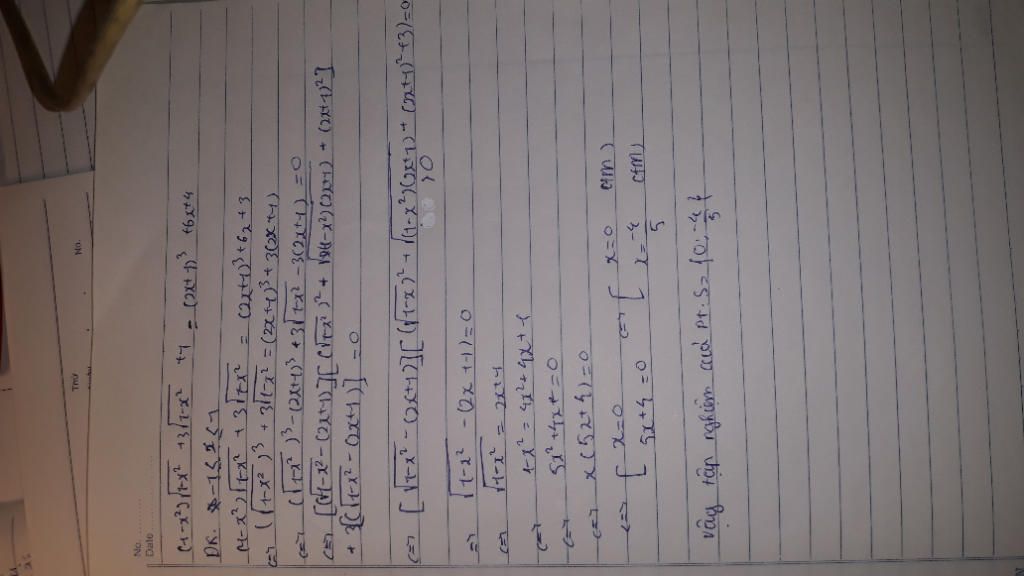 No.
Date
Thứ
No.
(1-x²)√1-x² +3√1-x² +1 = (2x+1)³ +6x+4
ĐK. -1 ≤ x ≤ 1
(1-x²)√1-x² + 3√1-x² = (2x+1)³+6x+3
<=> (√1-x²)³ + 3√1-x² = (2x+1)³+3(2x+1)
<=> (√1-x²)³-(2x+1)³+3√1-x² -3(2x+1) = 0
<=> [√1-x² - (2x+1)][(√1-x²)² + √(1-x²)(2x+1) + (2x+1)²]
+ 3[√1-x² - (2x+1)] = 0
<=> [√1-x² - (2x+1)][(√1-x)² + √(1-x²)(2x+1) + (2x+1)²+3)=0
>0
=> √1-x² - (2x+1)=0
<=> √1-x² = 2x+1
<=> 1-x² = 4x²+4x+1
<=> 5x²+4x = 0
<=> x(5x+4)=0
<=> [ x=0 <=> [ x=0 (tm)
5x+4=0 x=-4/5 (tm)
Vậy tập nghiệm của Pt. S= {0; -4/5}